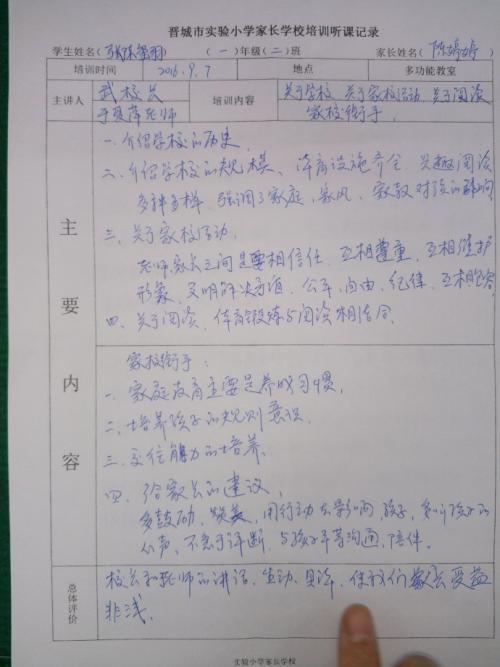 晋城市实验小学家长学校培训听课记录
学生姓名( ) (一)年级(二)班 家长姓名(陈婷婷)
培训时间 2016.9.7 地点 多功能教室
主讲人 武校长 老师 培训内容 关于学校、关于家校活动、关于阅读 家校衔手,
主要内容
一、介绍学校的历史,
二、介绍学校的规模、体育设施齐全、兴趣阅读
多种多样,强调了家庭、家风、家教对孩的影响
三、关于家校活动,
老师、家长之间是要相信任、互相尊重、互相维护
形象、文明解决方道、公平、自由、纪律、互相包容
四、关于阅读、体育锻练与阅读相结合。
家校衔手:
一、家庭教育主要是养成习惯,
二、培养孩子的规则意识
三、交往能力的培养,
四、给家长的建议,
多鼓励、赞美、用行动去影响孩子,多听孩子的
心声、不急于评断、与孩子平等沟通,陪伴。
总体评价
校长和老师的讲话、生动、具体、使我们家长受益
非浅。
实验小学家长学校